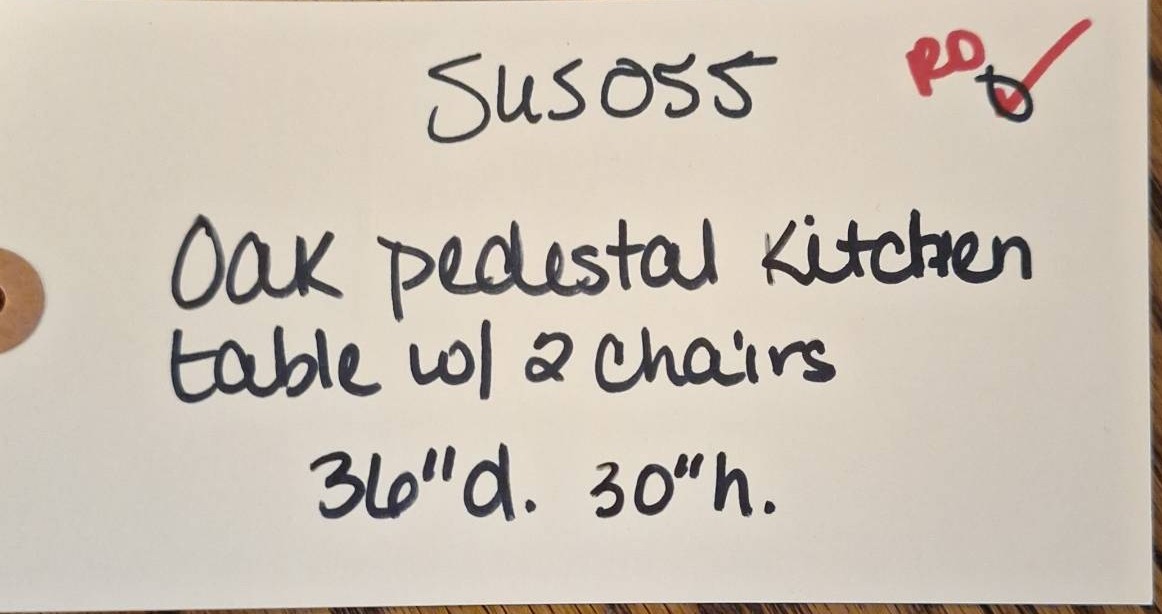 SUS055
RD
Oak pedestal Kitchen
table w/ 2 chairs
36"d. 30"h.